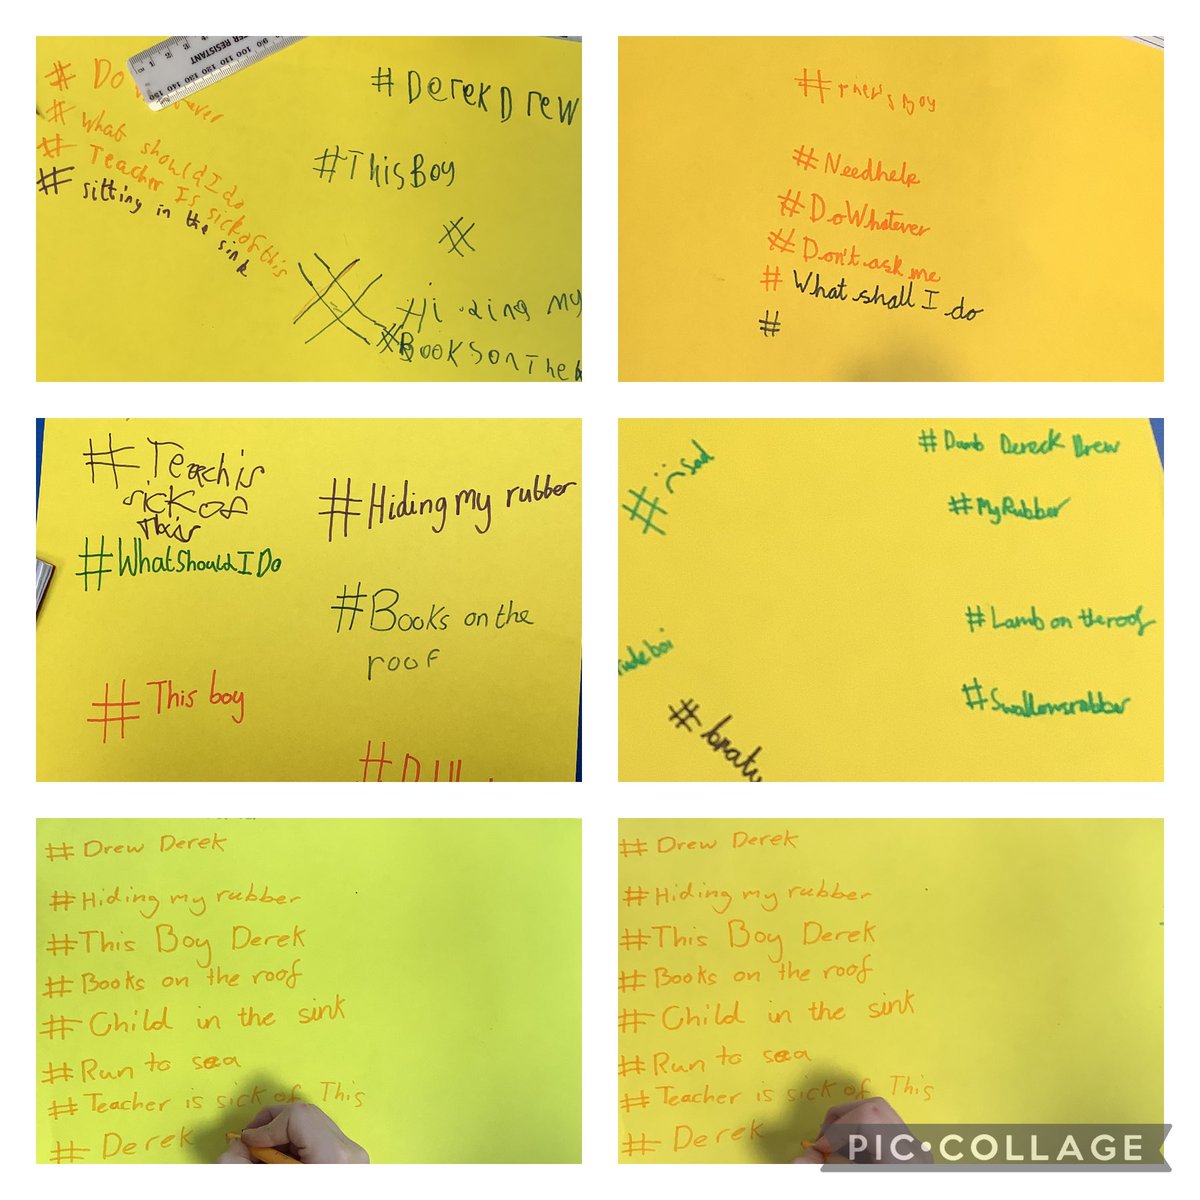 # Do
ever
# What should I do
# Teacher Is sick of this
# sitting in the sink
RESISTANT
150 140 130 120 110 100 90
# DerekDrew
#ThisBoy
#
Hi ding my
#BooksonThe
# Boy
# Needhelp
# DoWhatever
# Don't ask me
# What shall I do
#
# Teach is
sick of
This
#WhatShouldIDo
# This boy
#Hiding my rubber
#Books on the
roof
#
# sad
rude boi
#
#Dumb Dereck Drew
#MyRubber
#Lamb on the roof
#Swallowsrubber
# Drew Derek
# Hiding my rubber
#This Boy Derek
# Books on the roof
# Child in the sink
# Run to sea
# Teacher is sick of This
# Derek
# Drew Derek
# Hiding my rubber
#This Boy Derek
# Books on the roof
# Child in the sink
# Run to sea
# Teacher is sick of This
# Derek
PIC•COLLAGE